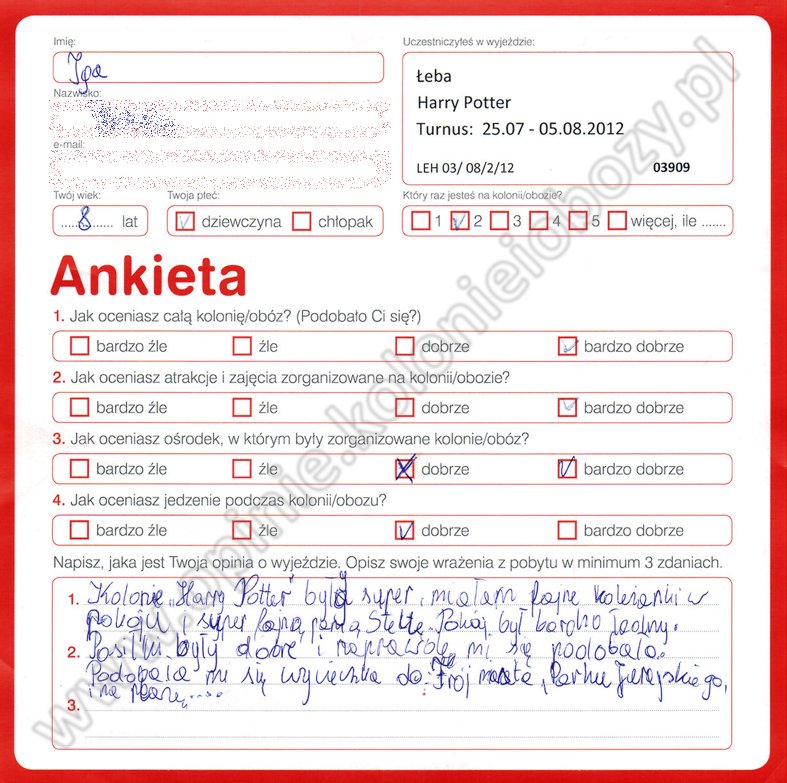 Imię:
Iga
Uczestniczyłeś w wyjeździe:
Łeba
Harry Potter
Turnus: 25.07 - 05.08.2012
LEH 03/ 08/2/12 03909
Nazwisko:
e-mail:
Twój wiek: Twoja płeć: Który raz jesteś na kolonii/obozie?
8 lat dziewczyna chłopak 1 2 3 4 5 więcej, ile .......
Ankieta
1. Jak oceniasz całą kolonię/obóz? (Podobało Ci się?)
bardzo źle źle dobrze bardzo dobrze
2. Jak oceniasz atrakcje i zajęcia zorganizowane na kolonii/obozie?
bardzo źle źle dobrze bardzo dobrze
3. Jak oceniasz ośrodek, w którym były zorganizowane kolonie/obóz?
bardzo źle źle dobrze bardzo dobrze
4. Jak oceniasz jedzenie podczas kolonii/obozu?
bardzo źle źle dobrze bardzo dobrze
Napisz, jaka jest Twoja opinia o wyjeździe. Opisz swoje wrażenia z pobytu w minimum 3 zdaniach.
1. Kolonie „Harry Potter" były super, miałam fajne koleżanki w
pokoju super fajną panią Stellę. Pokój był bardzo ładny.
2. Posiłki były dobre i naprawdę mi się podobało.
Podobała mi się wycieczka do Trój miasta, Parku Jurajskiego,
i na plażę.....
3.
www.opinie.kolonieiobozy.pl